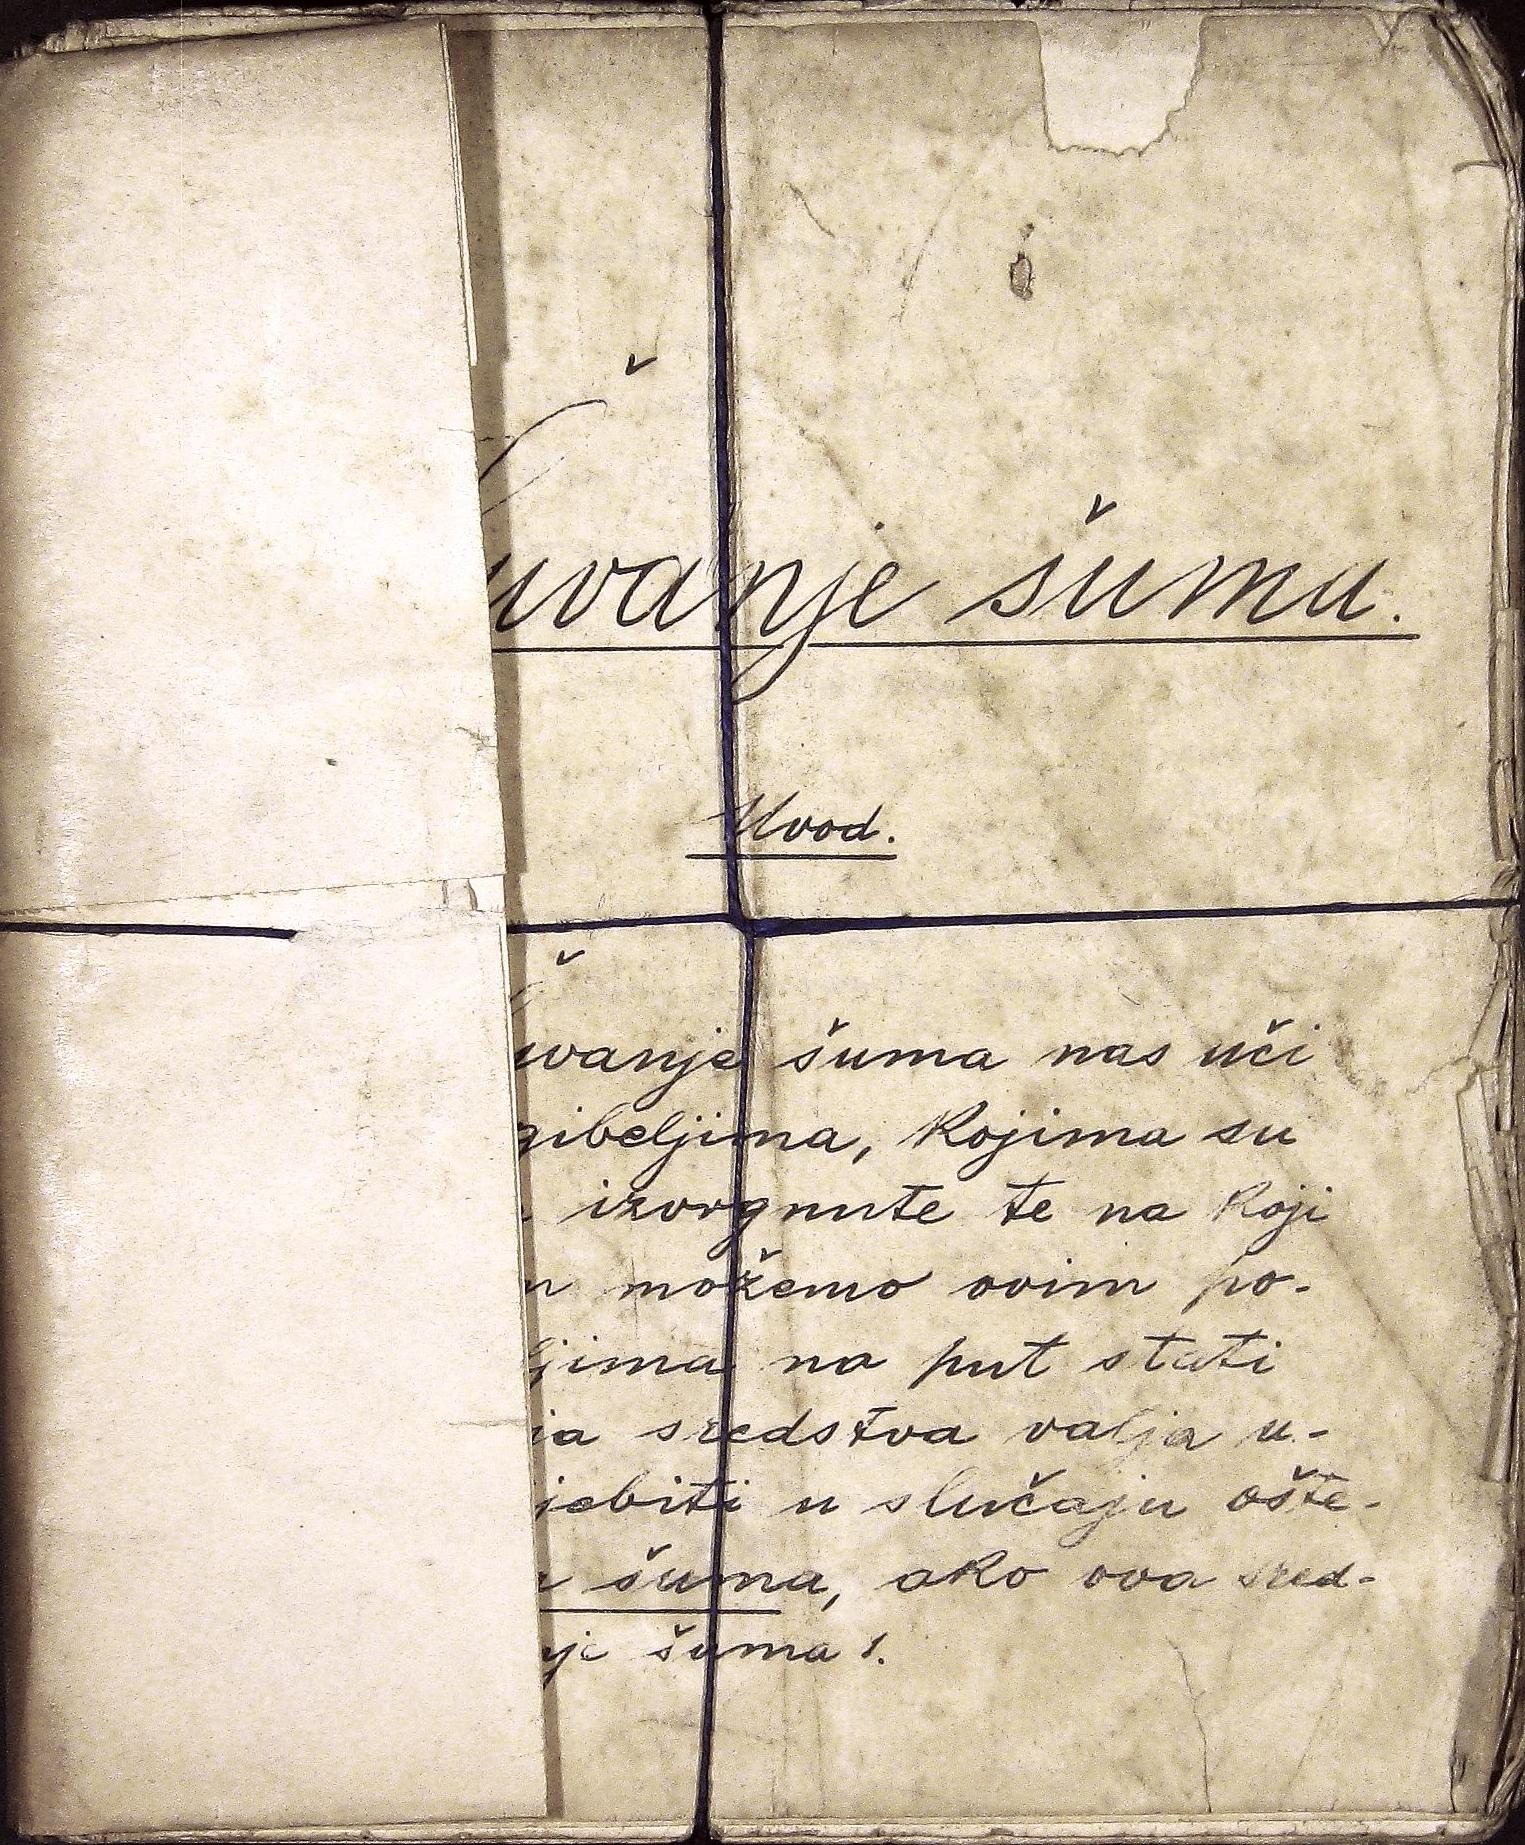 uvanje šuma.
Uvod.
uvanje šuma nas uči
gibeljima, kojima su
izvrgnute te na koji
možemo ovim po-
ljima na put stati
ia sredstva valja u-
jebiti u slučaju ošte-
šuma, ako ova sred-
nje šuma 1.